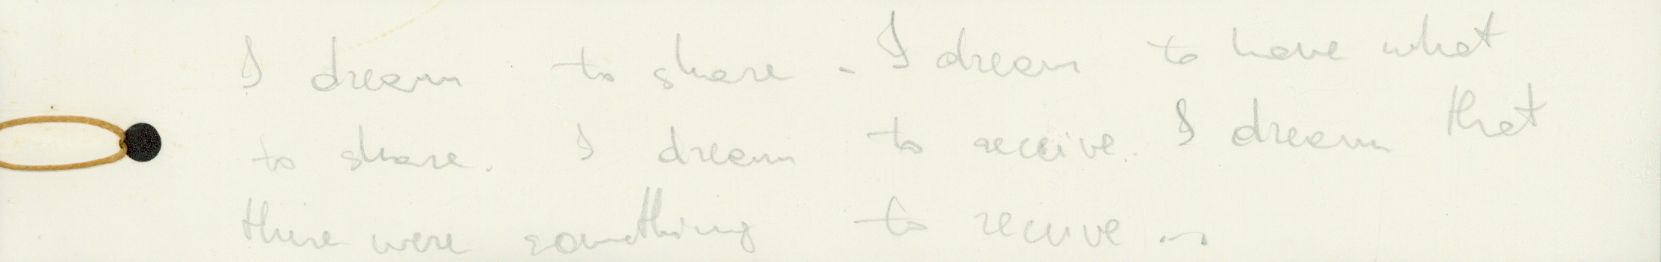 I dream to share - I dream to have what
to share. I dream to receive. I dream that
there were something to receive...